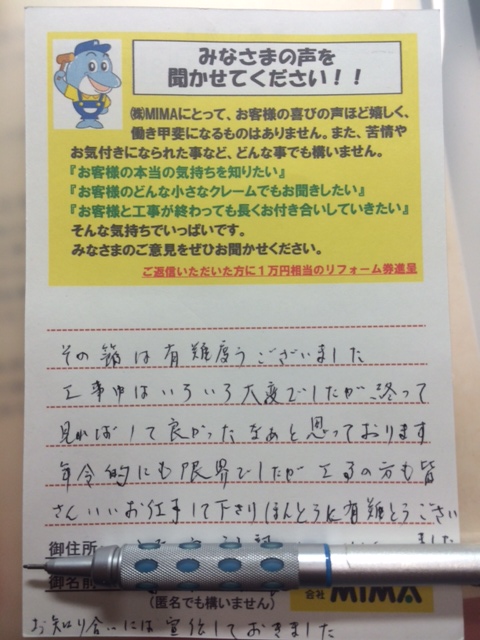 みなさまの声を
聞かせてください！！
㈱MIMAにとって、お客様の喜びの声ほど嬉しく、
働き甲斐になるものはありません。また、苦情や
お気付きになられた事など、どんな事でも構いません。
『お客様の本当の気持ちを知りたい』
『お客様のどんな小さなクレームでもお聞きしたい』
『お客様と工事が終わっても長くお付き合いしていきたい』
そんな気持ちでいっぱいです。
みなさまのご意見をぜひお聞かせください。
ご返信いただいた方に１万円相当のリフォーム券進呈
その節は有難度うございました
工事中はいろいろ大変でしたが、終って
見ればして良かったなあと思っております
年令的にも限界でしたが工事の方も皆
さんいいお仕事して下さりほんとうに有難とうござい
ました
御住所
御名前
（匿名でも構いません）
会社 MIMA
お知り合いには宣伝しておきました